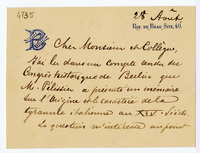 4135
28 Août
RUE DE BEAU-SITE, 40.
Cher Monsieur et Collègue,
J'ai lu dans un compte rendu du
Congrès historique de Berlin que
Mr Pélissier a présenté un mémoire
sur l'origine et le caractère de la
tyrannie italienne au XIVe siècle.
La question m'intéresse au point